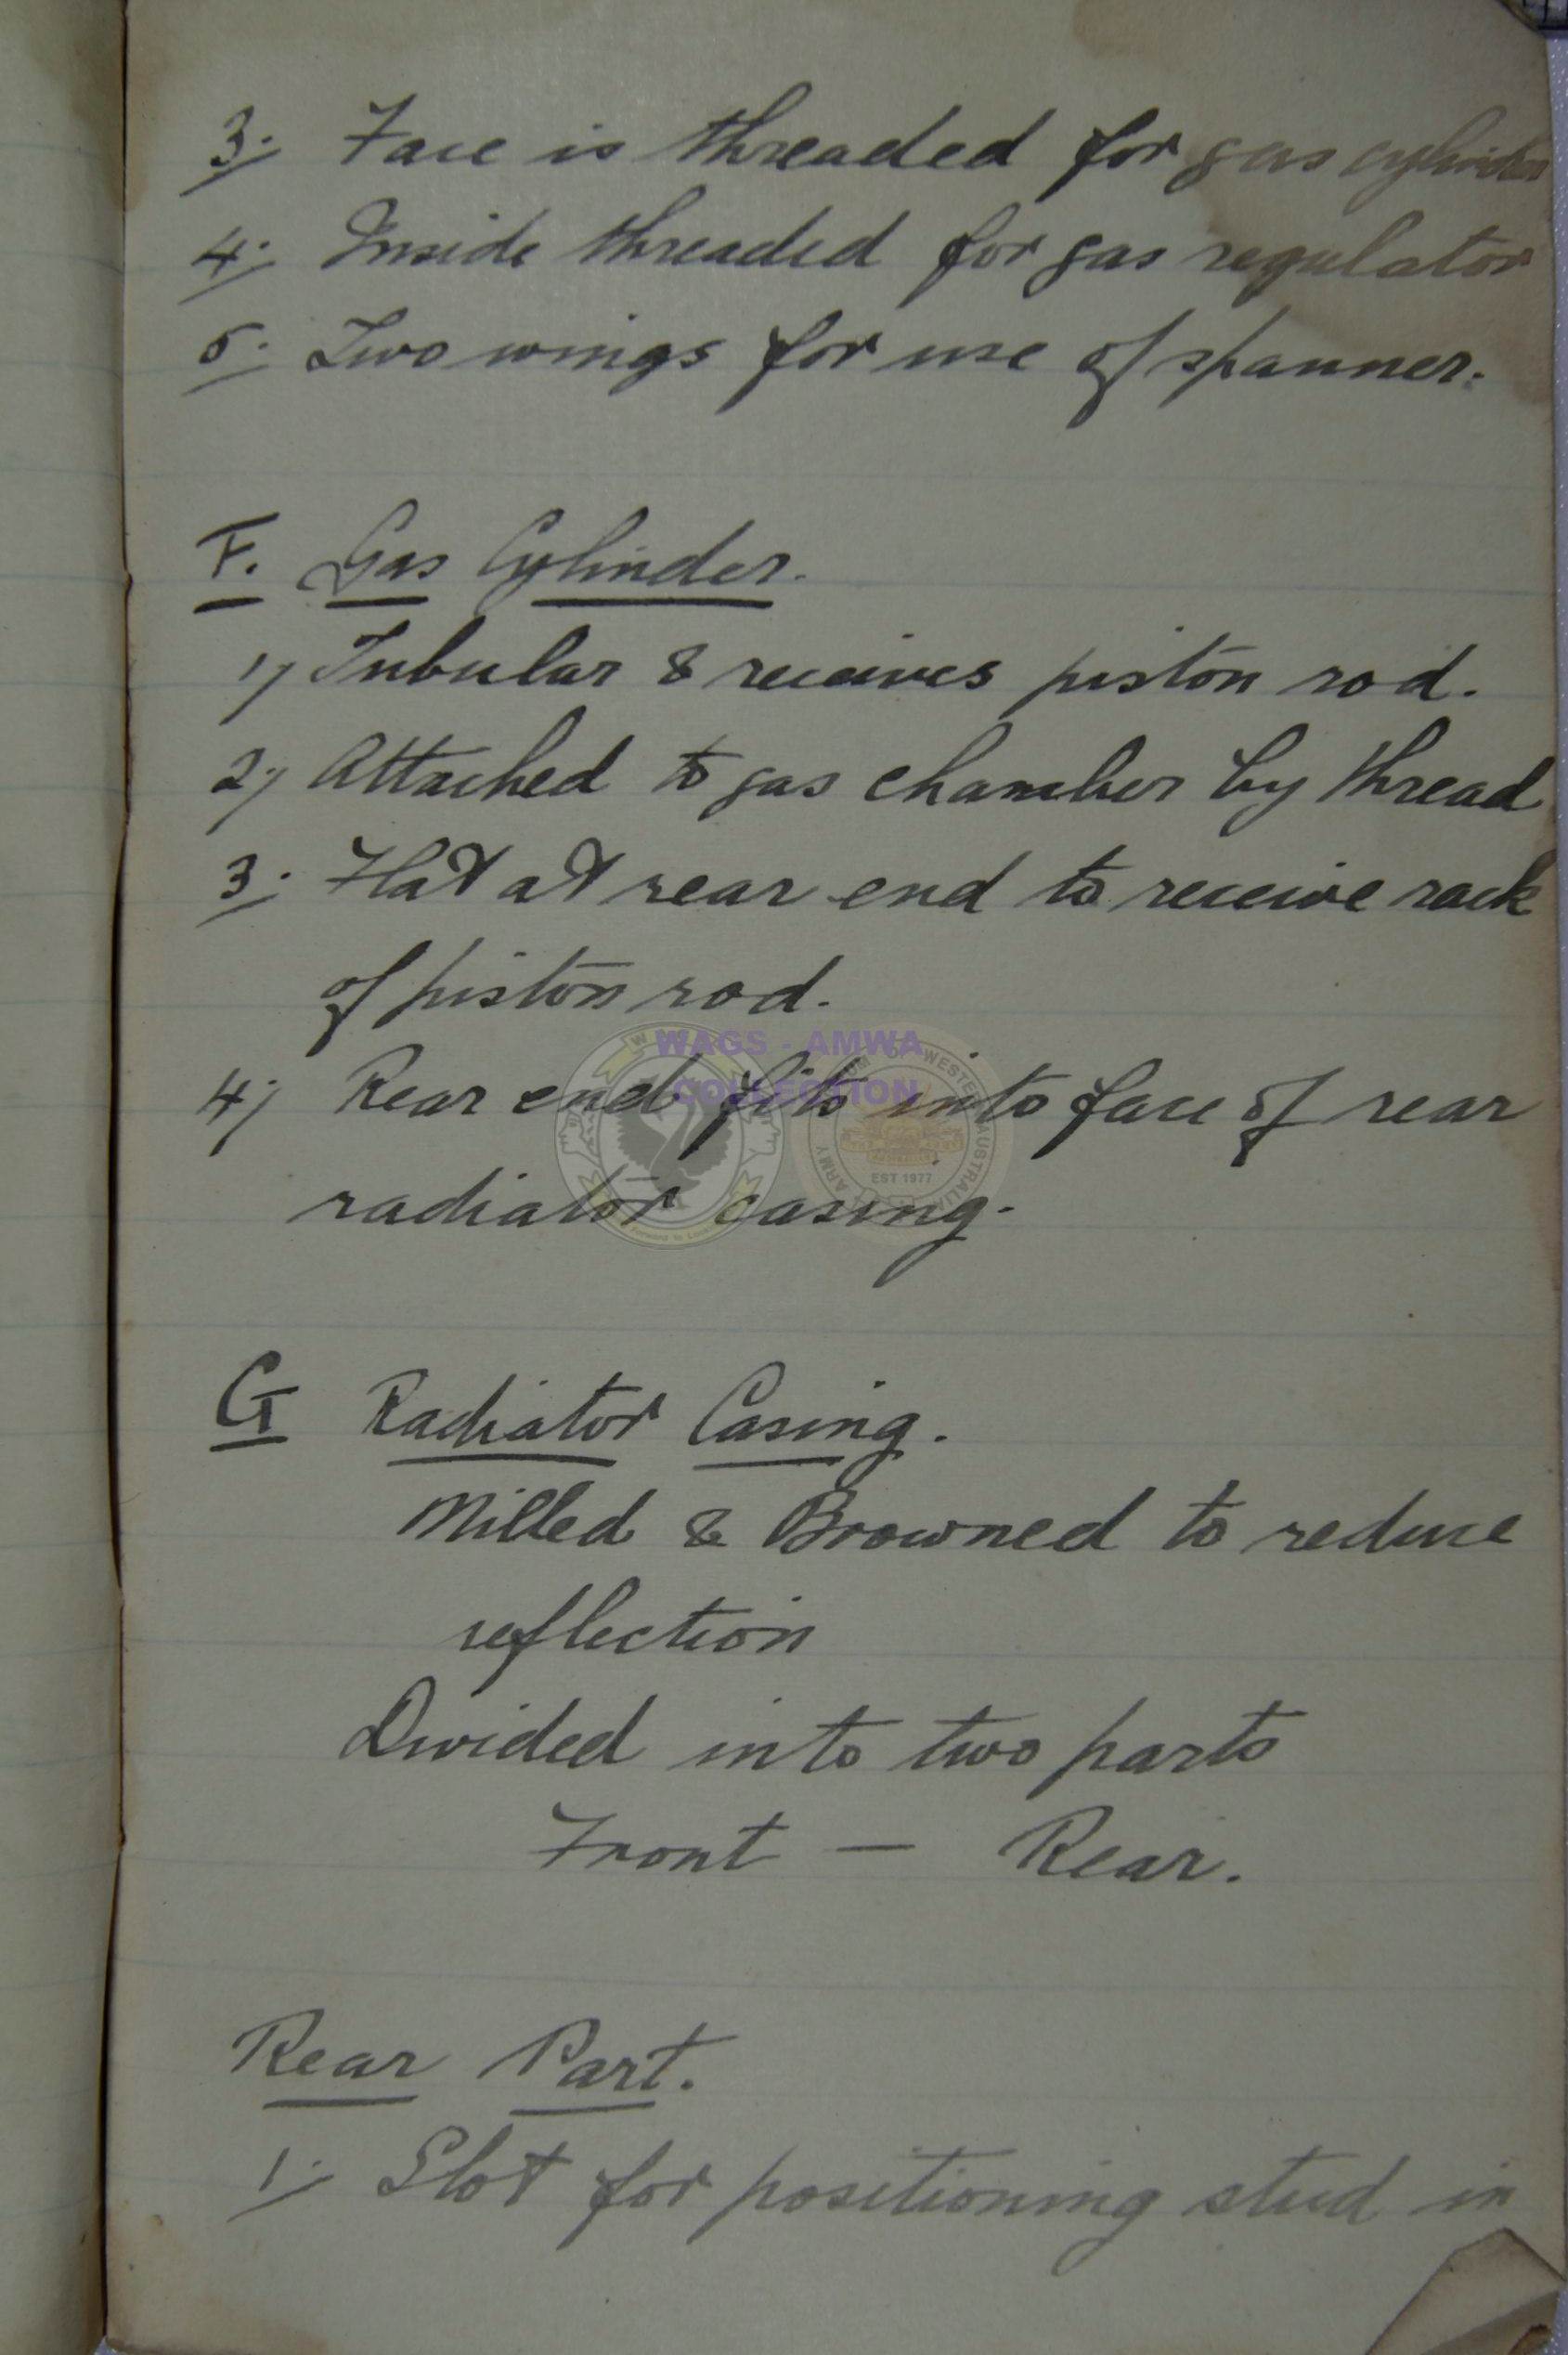 3; Face is threaded for gas cylinder
4; Inside threaded for gas regulator
5; Two wings for use of spanner.
F. Gas Cylinder.
1; Tubular & receives piston rod.
2; Attached to gas chamber by thread
3; Flat at rear end to receive rack
of piston rod.
WAGS - AMWA
COLLECTION
4; Rear end fits into face of rear
EST 1977
radiator casing.
G Radiator Casing.
Milled & Browned to reduce
reflection
Divided into two parts
Front — Rear.
Rear Part.
1; Slot for positioning stud in